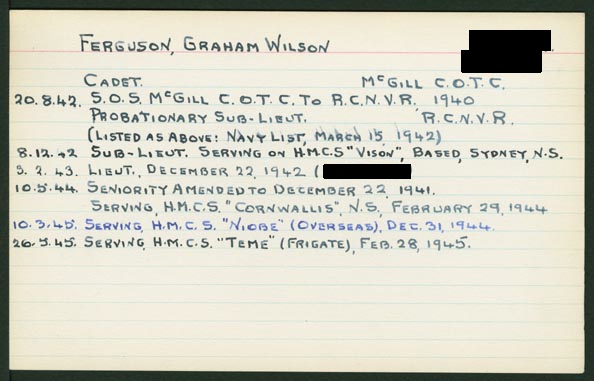 FERGUSON, GRAHAM WILSON
CADET. McGILL C.O.T.C.
20.8.42. S.O.S. McGILL C.O.T.C. TO R.C.N.V.R. 1940
PROBATIONARY SUB-LIEUT. R.C.N.V.R.
(LISTED AS ABOVE: NAVY LIST, MARCH 15, 1942)
8.12.42 SUB-LIEUT. SERVING ON H.M.C.S "VISON", BASED, SYDNEY, N.S.
5.2.43. LIEUT., DECEMBER 22, 1942 (
10.5.44. SENIORITY AMENDED TO DECEMBER 22, 1941.
SERVING, H.M.C.S. "CORNWALLIS", N.S., FEBRUARY 29, 1944
10.3.45. SERVING, H.M.C.S. "NIOBE" (OVERSEAS), DEC. 31, 1944.
26.5.45. SERVING, H.M.C.S. "TEME" (FRIGATE), FEB. 28, 1945.